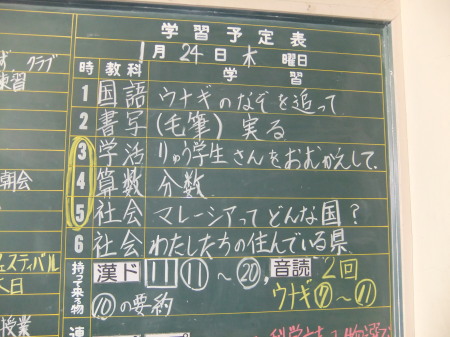 学習予定表
1月24日木曜日
時 教科 学習
1 国語 ウナギのなぞを追って
2 書写 (毛筆) 実る
3 学活 りゅう学生さんをおむかえして
4 算数 分数
5 社会 マレーシアってどんな国?
6 社会 わたしたちの住んでいる県
持って来る物 漢ド 11 ⑪~⑳, 音読 2回
⑩の要約 ウナギ⑦~⑪
クラブ
練習
朝会
ェスティバル
授業